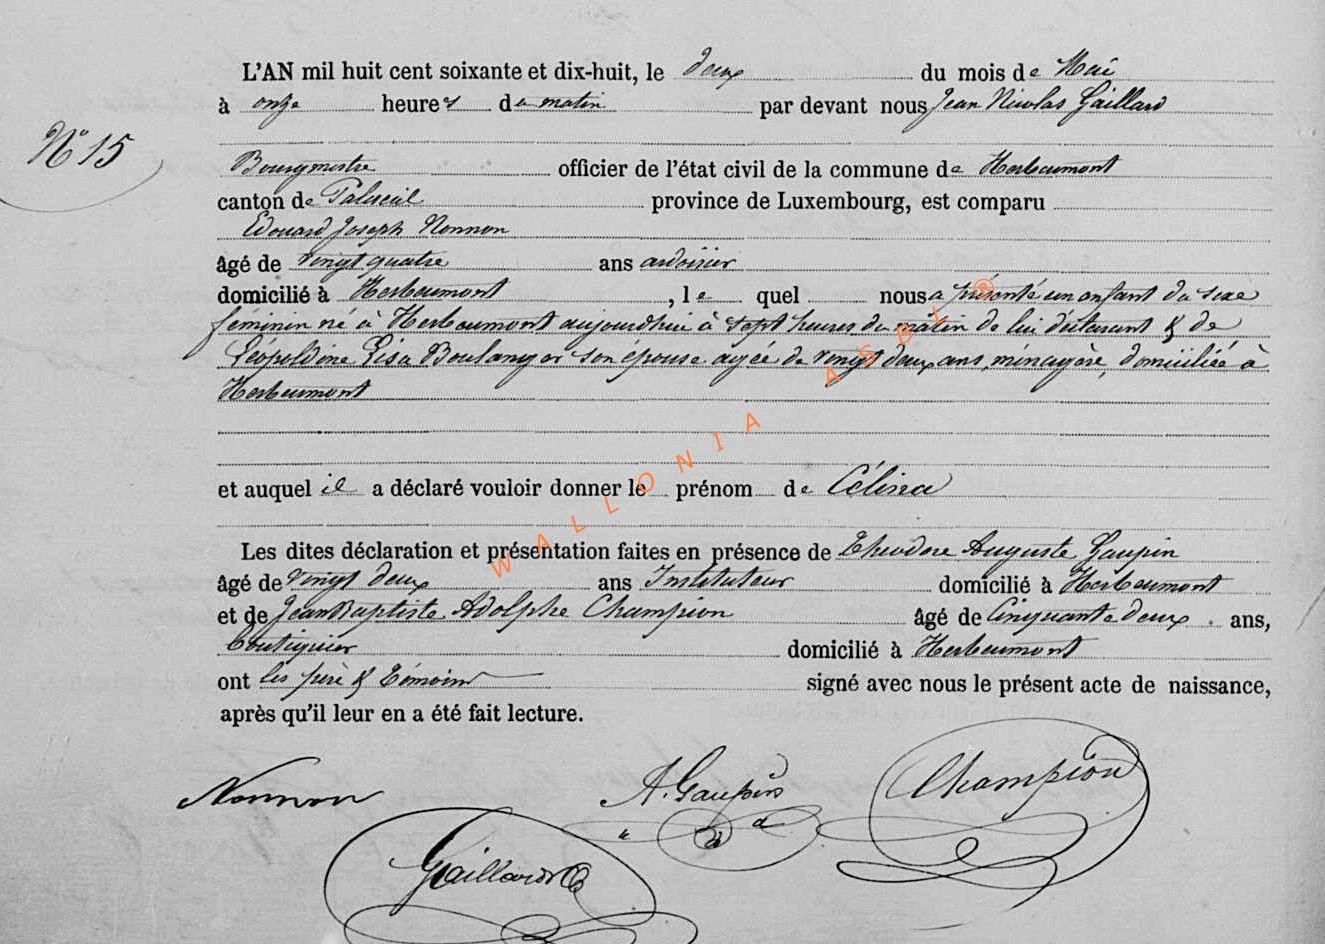 L'AN mil huit cent soixante et dix-huit, le deux du mois de Mai
à onze heures du matin par devant nous Jean Nicolas Gaillard
N° 15
Bourgmestre officier de l'état civil de la commune de Herbeumont
canton de Paliseul province de Luxembourg, est comparu
Edouard Joseph Nonnon
âgé de vingt quatre ans ardoisier
domicilié à Herbeumont, lequel nous a présenté un enfant du sexe
féminin né à Herbeumont aujourdhui à sept heures du matin de lui déclarant & de
Léopoldine Elisa Boulanger son épouse agée de vingt deux ans, ménagère, domiciliée à
Herbeumont
et auquel il a déclaré vouloir donner le prénom de Célina
Les dites déclaration et présentation faites en présence de Théodore Auguste Gaupin
âgé de vingt deux ans Instituteur domicilié à Herbeumont
et de Jean Baptiste Adolphe Champion âgé de Cinquante deux ans,
boutiquier domicilié à Herbeumont
ont les père & témoins signé avec nous le présent acte de naissance,
après qu'il leur en a été fait lecture.
Nonnon A. Gaupin Champion
Gaillard
WALLONIA ASBL ®